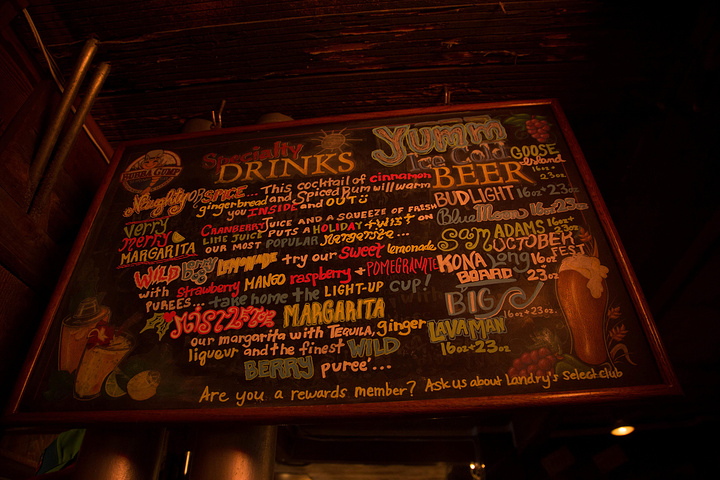 BUBBA GUMP
Specialty
DRINKS
Naughty OR SPICE... This cocktail of cinnamon
gingerbread and Spiced Rum will warm
you INSIDE and OUT
Verry
Merry
MARGARITA
CRANBERRY JUICE AND A SQUEEZE OF FRESH
LIME JUICE PUTS A HOLIDAY twist ON
OUR MOST POPULAR Margarita...
WILD BERRY LEMONADE try our Sweet lemonade
with Strawberry MANGO raspberry + POMEGRANATE
PUREES... take home the LIGHT-UP CUP!
Mistletoe MARGARITA
our margarita with TEQUILA, ginger
liqueur and the finest WILD
BERRY pureé...
Yumm
Ice Cold
BEER
GOOSE
Island
16oz+
23oz
BUD LIGHT 16oz 23oz
Blue Moon 16oz 23oz
SAM ADAMS 16oz+ 23oz
OCTOBER
FEST
KONA Long
BOARD
16oz
23oz
BIG
16oz+23oz
LAVA MAN
16oz+23oz
Are you a rewards member? Ask us about Landry's Select club